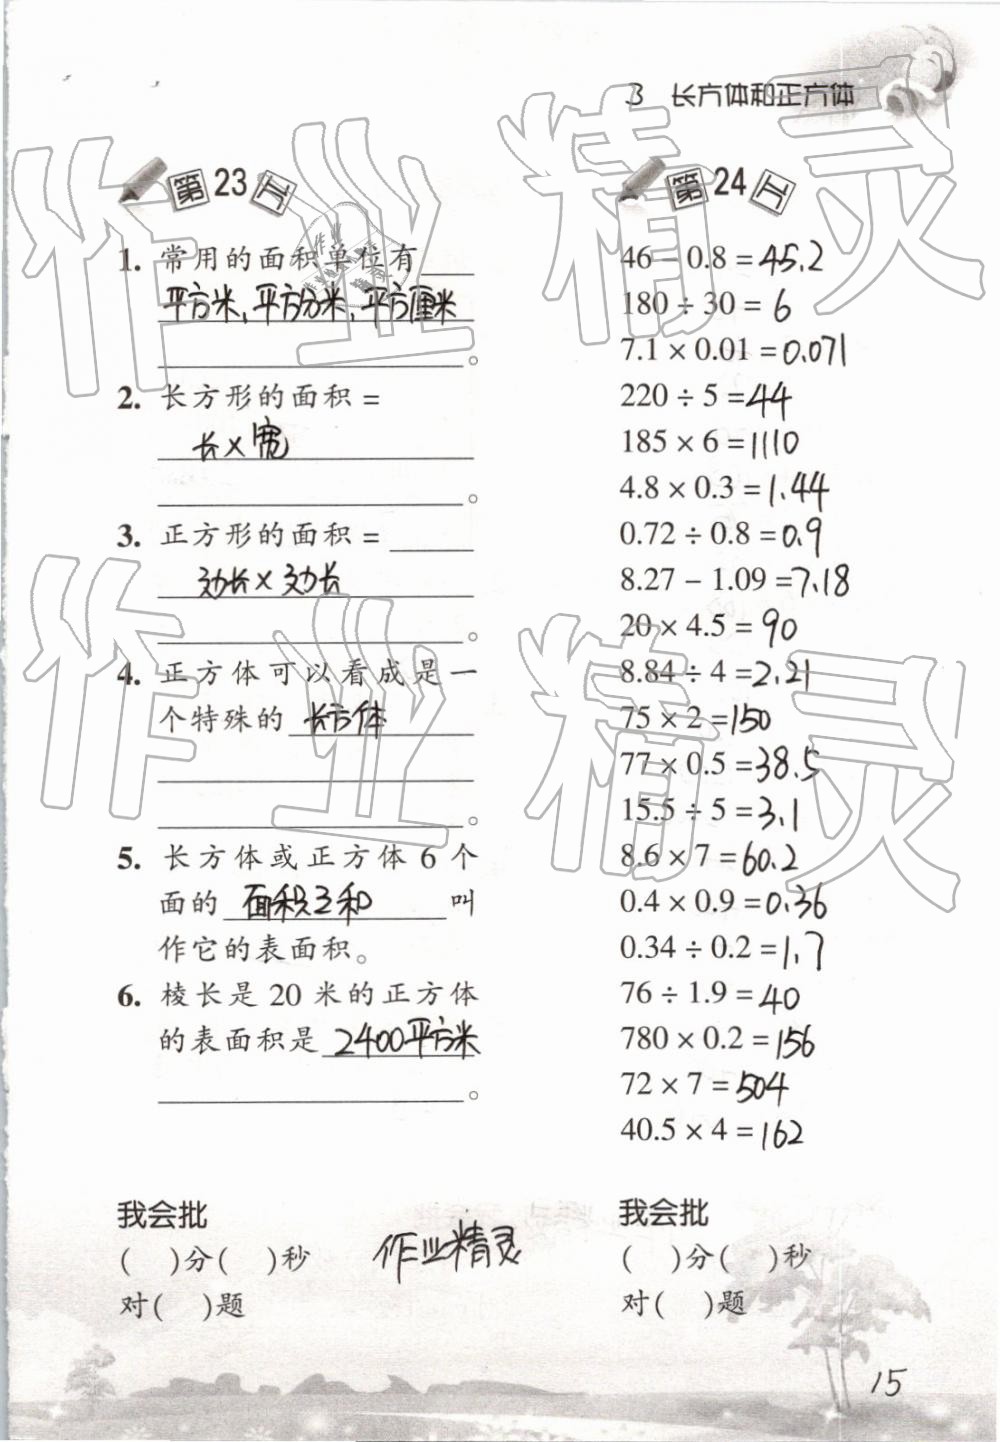 3 长方体和正方体
第23工
1. 常用的面积单位有
平方米、平方分米、平方厘米
。
2. 长方形的面积 =
长×宽
。
3. 正方形的面积 =
边长×边长
。
4. 正方体可以看成是一
个特殊的 长方体
。
5. 长方体或正方体 6 个
面的 面积之和 叫
作它的表面积。
6. 棱长是 20 米的正方体
的表面积是 2400平方米
。
我会批
( )分( )秒
对( )题
作业精灵
第24工
46 − 0.8 = 45.2
180 ÷ 30 = 6
7.1 × 0.01 = 0.071
220 ÷ 5 = 44
185 × 6 = 1110
4.8 × 0.3 = 1.44
0.72 ÷ 0.8 = 0.9
8.27 − 1.09 = 7.18
20 × 4.5 = 90
8.84 ÷ 4 = 2.21
75 × 2 = 150
77 × 0.5 = 38.5
15.5 ÷ 5 = 3.1
8.6 × 7 = 60.2
0.4 × 0.9 = 0.36
0.34 ÷ 0.2 = 1.7
76 ÷ 1.9 = 40
780 × 0.2 = 156
72 × 7 = 504
40.5 × 4 = 162
我会批
( )分( )秒
对( )题
15
作业精灵
作业精灵